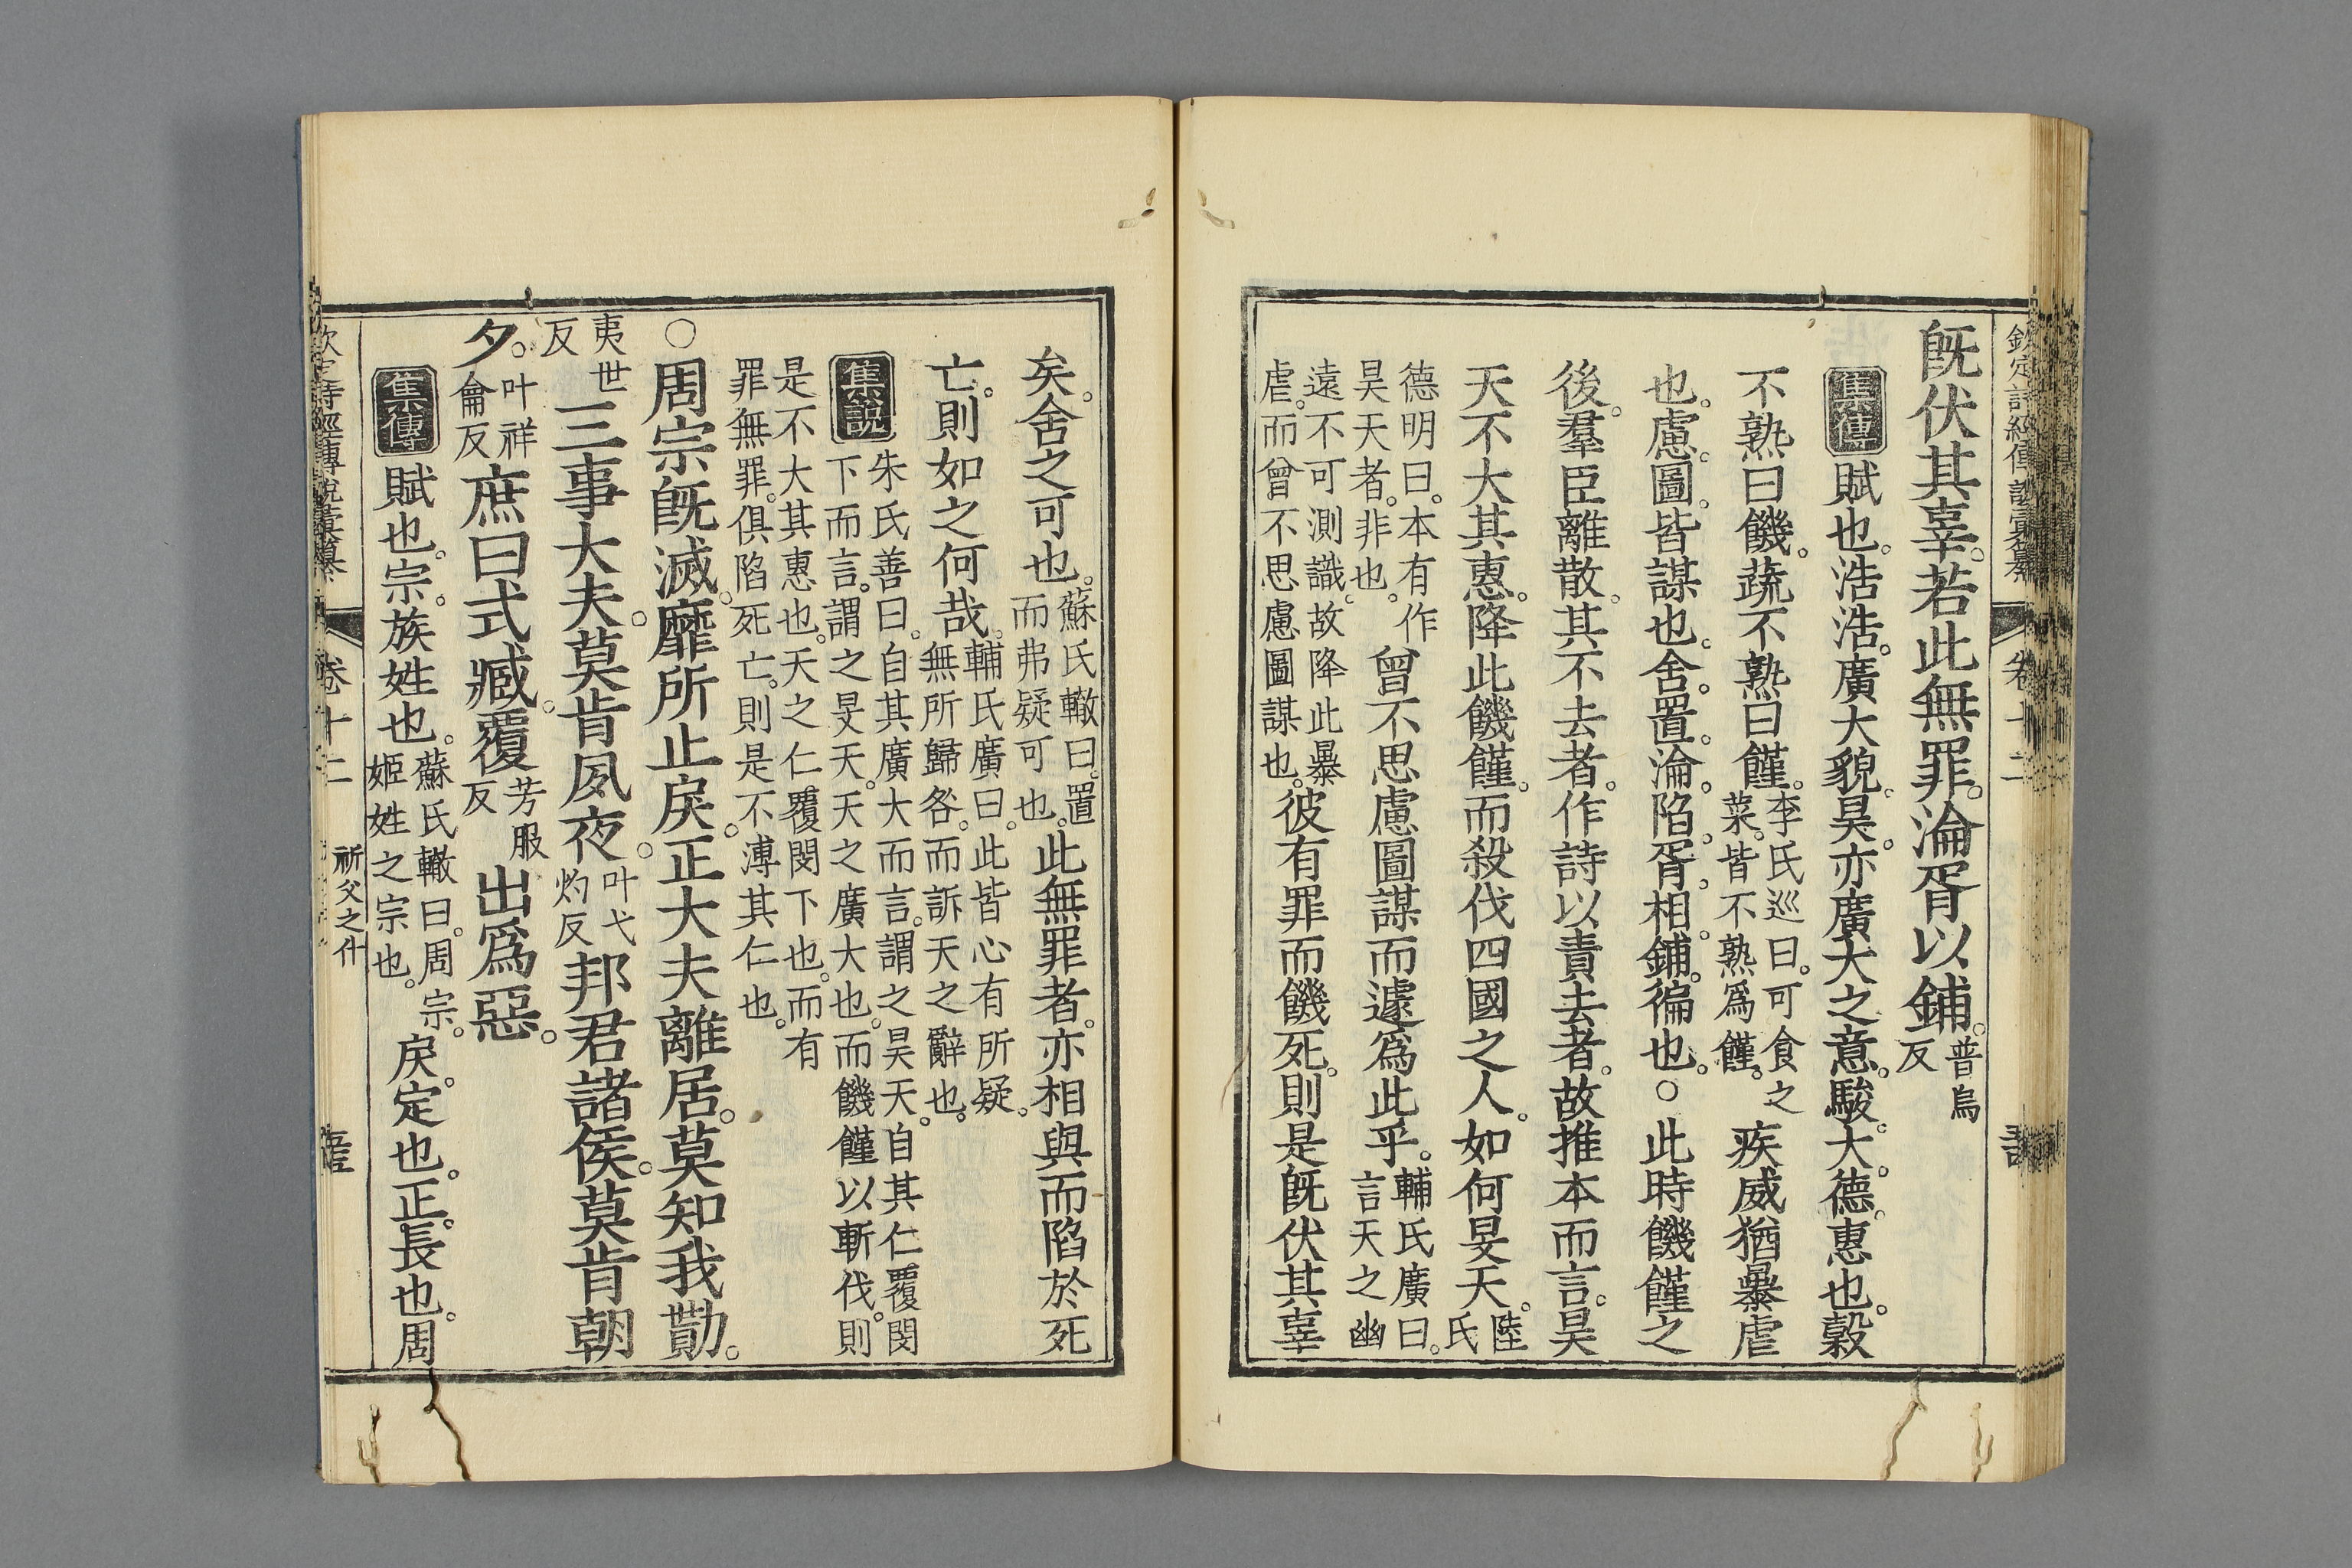 旣伏其辜。若此無罪。淪胥以鋪。普烏反
集傳 賦也。浩浩。廣大貌。昊。亦廣大之意。駿。大。德。惠也。穀
不熟曰饑。蔬不熟曰饉。李氏巡曰。可食之菜。皆不熟爲饉。疾威猶暴虐
也。慮。圖。皆謀也。舍。置。淪。陷。胥。相。鋪。徧也。○此時饑饉之
後。羣臣離散。其不去者。作詩以責去者。故推本而言。昊
天不大其惠。降此饑饉。而殺伐四國之人。如何旻天。陸氏
德明曰。本有作昊天者。非也。曾不思慮圖謀而遽爲此乎。輔氏廣曰。言天之幽
遠不可測識。故降此暴虐。而曾不思慮圖謀也。彼有罪而饑死。則是旣伏其辜
矣。舍之可也。蘇氏轍曰。置而弗疑可也。此無罪者。亦相與而陷於死
亡。則如之何哉。輔氏廣曰。此皆心有所疑。無所歸咎。而訴天之辭也。
集說 朱氏善曰。自其廣大而言。謂之昊天。自其仁覆閔下而言。謂之旻天。天之廣大也。而饑饉以斬伐。則
是不大其惠也。天之仁覆閔下也。而有罪無罪。俱陷死亡。則是不溥其仁也。
○周宗旣滅。靡所止戾。正大夫離居。莫知我勩。
夷世反三事大夫。莫肯夙夜。叶弋灼反邦君諸侯。莫肯朝
夕。叶祥龠反庶曰式臧。覆芳服反出爲惡。
集傳 賦也。宗。族姓也。蘇氏轍曰。周宗。姬姓之宗也。戾。定也。正。長也。周
卷十二 祈父之什